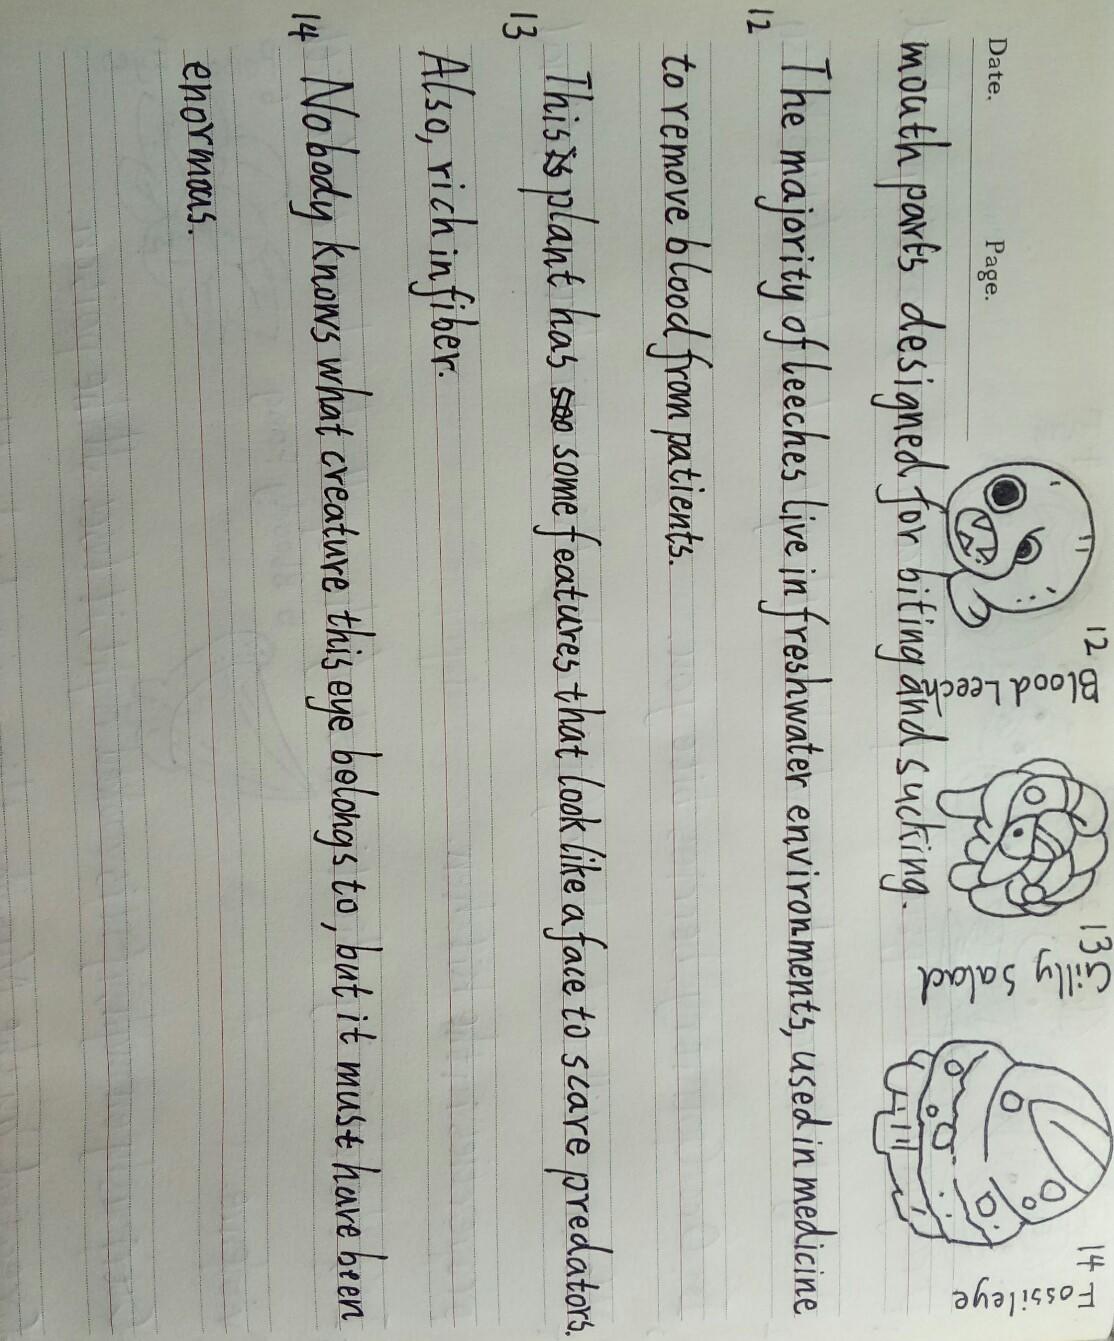 Date.
Page.
12
Blood Leech
13
Gilly Salad
14
Fossileye
mouth parts designed for biting and sucking.
12 The majority of leeches live in freshwater environments, used in medicine
to remove blood from patients.
13 This plant has some features that look like a face to scare predators.
Also, rich in fiber.
14 Nobody knows what creature this eye belongs to, but it must have been
enormous.